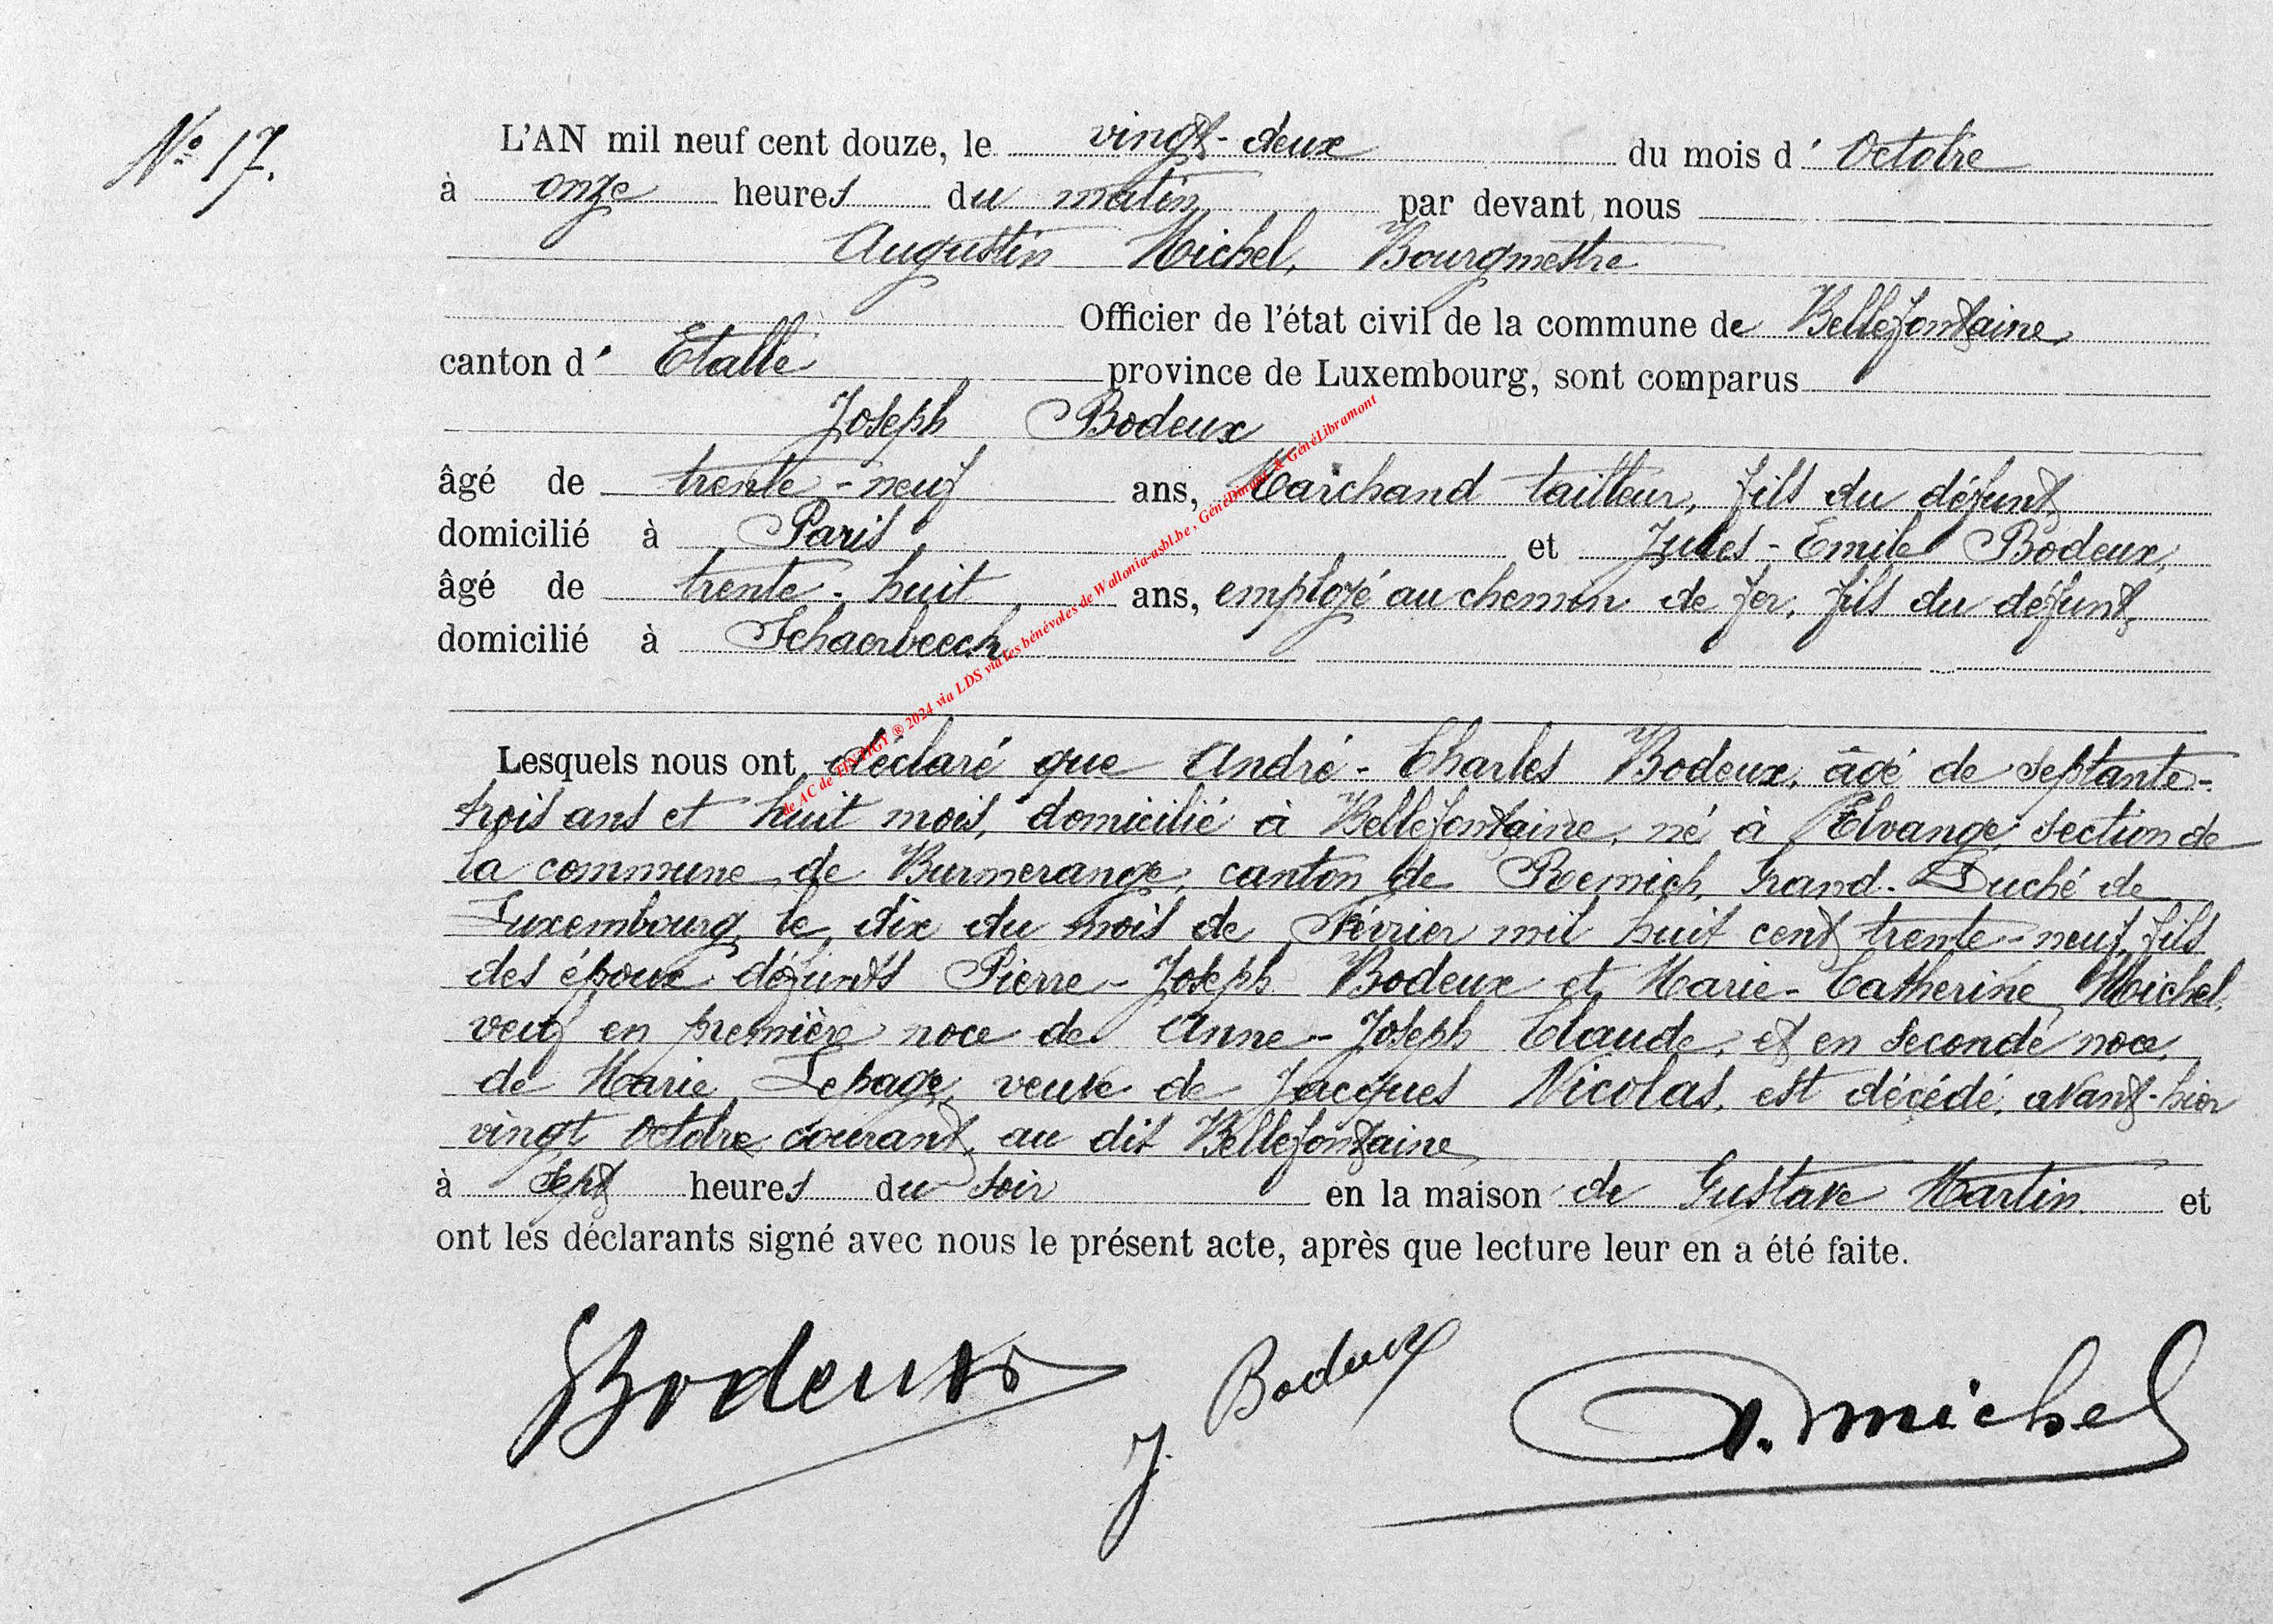 Nº 17.
L'AN mil neuf cent douze, le vingt-deux du mois d' Octobre
à onze heures du matin par devant nous
Augustin Michel, Bourgmestre
Officier de l'état civil de la commune de Bellefontaine,
canton d' Etalle province de Luxembourg, sont comparus
Joseph Bodeux
âgé de trente-neuf ans, Marchand tailleur, fils du défunt,
domicilié à Paris et Jules-Emile Bodeux,
âgé de trente-huit ans, employé au chemin de fer, fils du défunt,
domicilié à Schaerbeech
Lesquels nous ont déclaré que André-Charles Bodeux, âgé de septante-
trois ans et huit mois, domicilié à Bellefontaine, né à Elvange, section de
la commune de Burmerange, canton de Remich, Grand-Duché de
Luxembourg, le dix du mois de Février mil huit cent trente-neuf, fils
des époux défunts Pierre-Joseph Bodeux et Marie-Catherine Michel,
veuf en première noce de Anne-Joseph Claude, et en seconde noce,
de Marie Lepage, veuve de Jacques Nicolas, est décédé, avant-hier
vingt Octobre courant, au dit Bellefontaine
à sept heures du soir en la maison de Gustave Martin. et
ont les déclarants signé avec nous le présent acte, après que lecture leur en a été faite.
Bodeux
J. Bodeux
A. Michel
de AC de TINTIGY ® 2024 via LDS via les bénévoles de Wallonia-asbl.be, GénéDinant & GénéLibramont